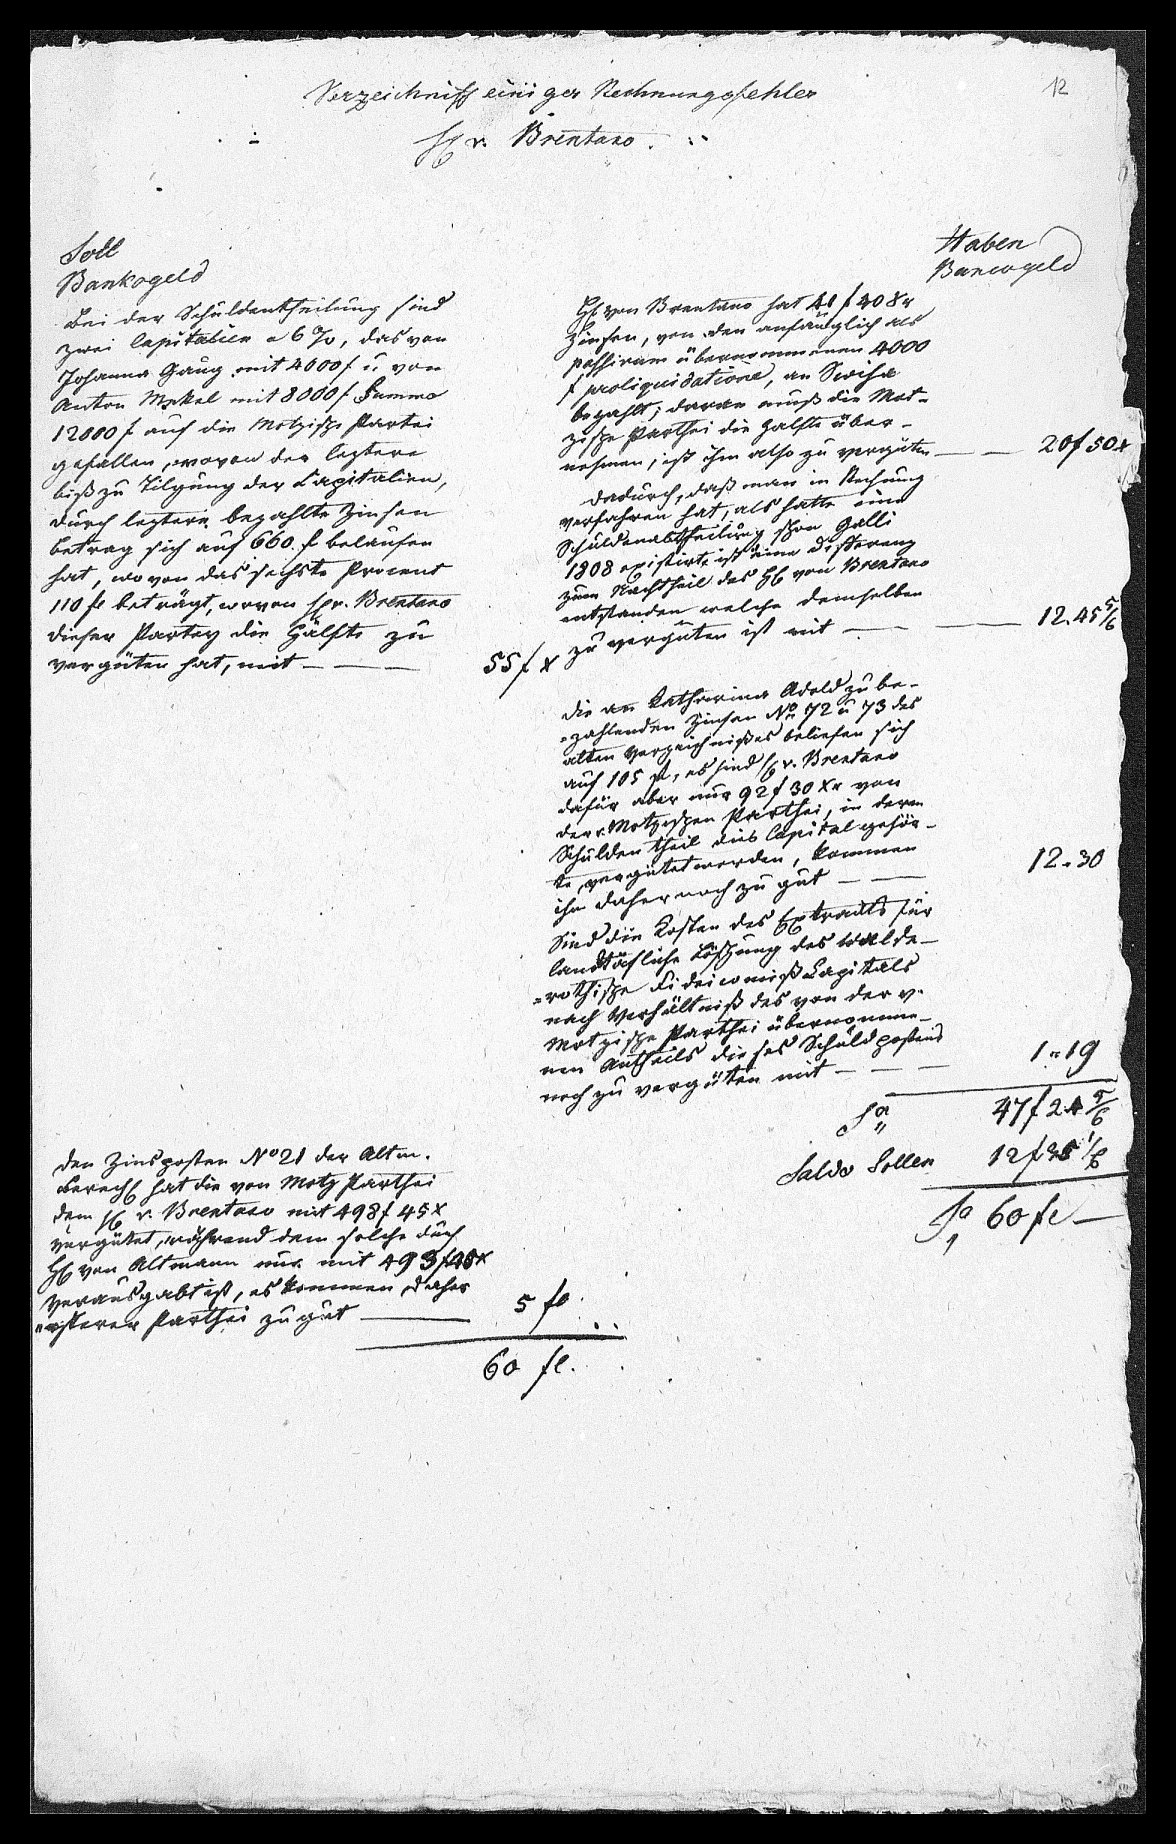 Verzeichniß einiger Rechnungsfehler
12
H v. Brentano.
Soll
Bankogeld
Bei der Schuldentheilung sind
zwei Capitalien a 6 %, das von
Johanna Gaug mit 4000 f u von
Anton Mekel mit 8000 f Summa
12000 f auf die Motzische Partei
gefallen, wovon der leztere
biß zu Tilgung der Capitalien,
durch leztere bezahlte Zinsen
betrag sich auf 660. f belaufen
hat, wovon das sechste Procent
110 fl beträgt, wovon H v. Brentano
dieser Partey die Hälfte zu
vergüten hat, mit — — 55 f x
Den Zinsposten No 21 der Altm.
berech hat die von Motz Parthei
dem H v. Brentano mit 498 f 45 x
vergütet, während dem solche durch
H von Altmann nur mit 493 f 45 x
verausgabt ist, es kommen daher
ersterer Parthei zu gut — 5 fl.
60 fl.
Haben
Bancogeld
H von Brentano hat 41 f 40 Xr
Zinsen, von den anfänglich als
passivum übernommenen 4000
f pro liquidatione, an Swisa
bezahlt; daran muß die Mot-
zische Parthei die Hälfte über-
nehmen, ist ihm also zu vergüten — — 20 f 50 x
Dadurch, daß man in Rechnung
verfahren hat, als hätte eine
Schuldenabtheilung schon Galli
1808 existirt, ist eine Differenz
zum Nachtheil des H von Brentano
entstanden welche demselben
zu vergüten ist mit — — 12. 45 5/6
die an Katharina Adold zu be-
=zahlenden Zinsen No 72 u 73 des
alten Verzeichnißes beliefen sich
auf 105 fl, es sind H v. Brentano
dafür aber nur 92 f 30 Xr von
der v. Motzischen Parthei, in deren
Schulden theil dies Capital gehör-
te vergütet worden, kommen
ihm daher noch zu gut — — 12 . 30
Sind die Kosten des Extracts für
landtäfliche Löschung des Walde-
=rothische Fideicomiß Capitals
nach Verhältniß des von der v.
Motzische Parthei übernomme-
nen Antheils dieses Schuldpostens
noch zu vergüten mit — — — 1 " 19
Sa 47 f 24 5/6
Saldo Sollen 12 f 35 1/6
Sa 60 fl —